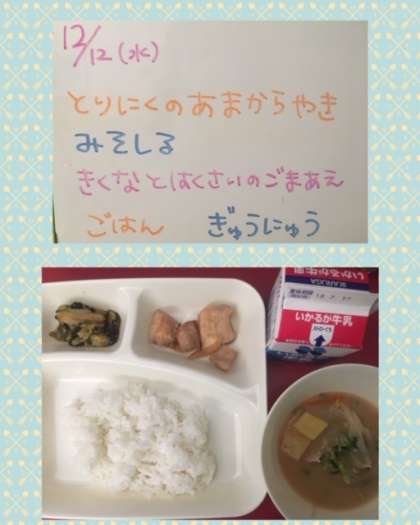 12/12(水)
とりにくのあまからやき
みそしる
きくなとはくさいのごまあえ
ごはん ぎゅうにゅう
いかるが牛乳
IKARUGA
いかるが牛乳